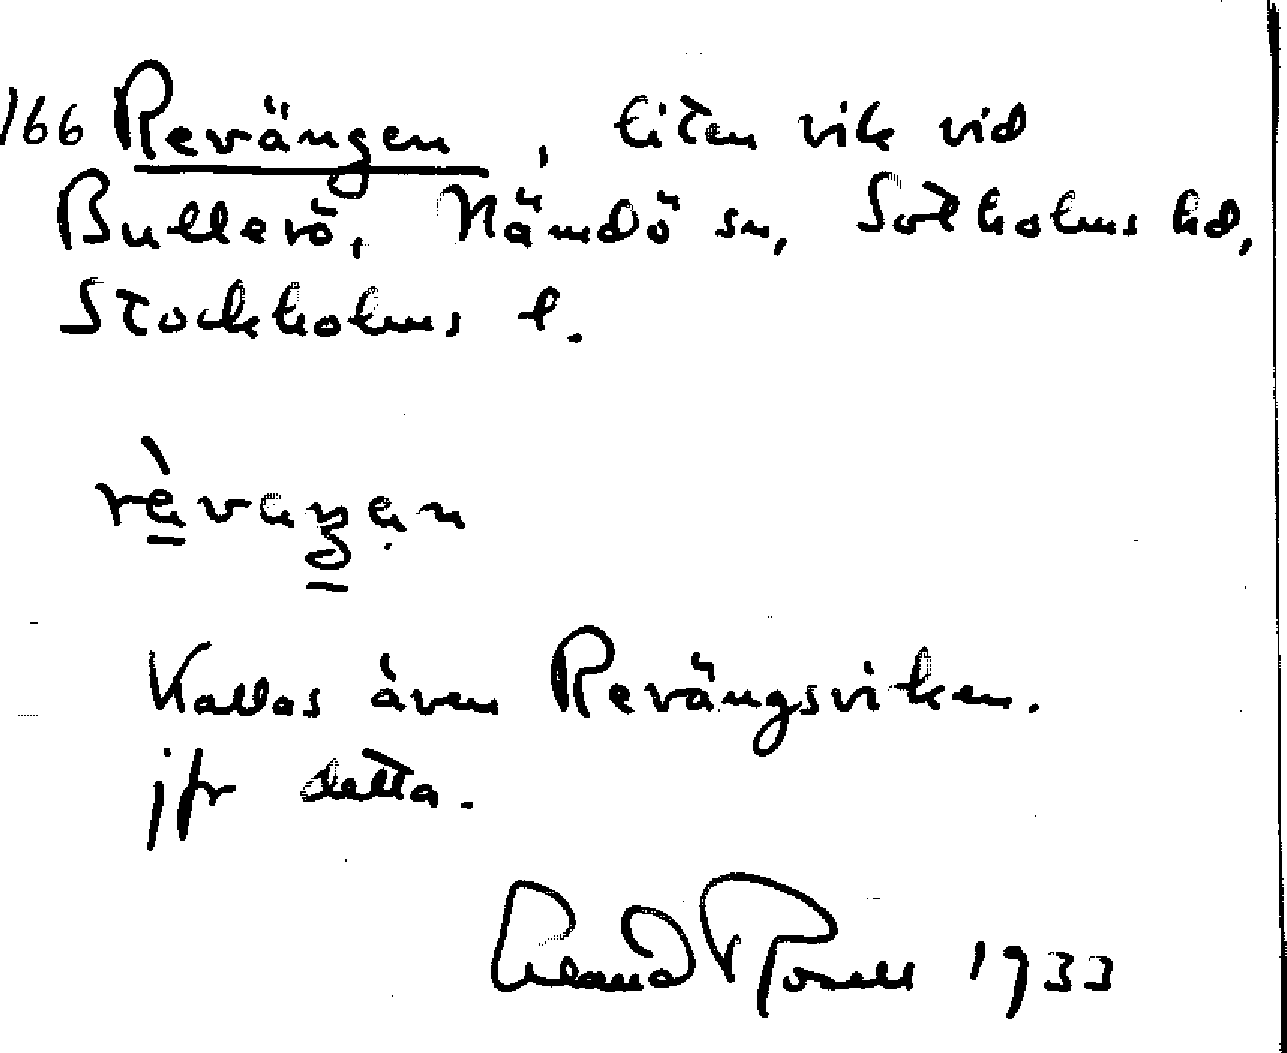 166 Revängen, liten vik vid
Bullerö, Nämdö sn, Sotholms hd,
Stockholms l.
Kallas även Revängsviken.
jfr detta.
1933